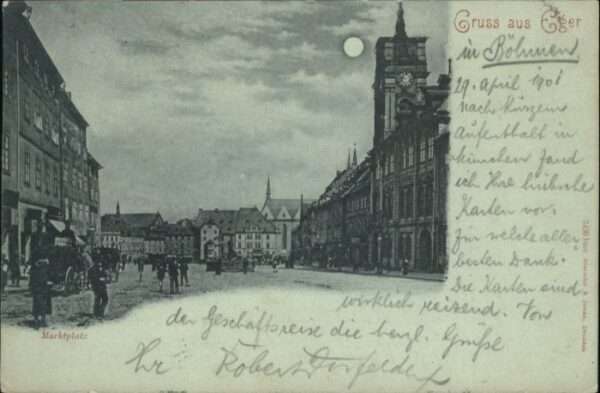 Gruss aus Eger
in Böhmen
29. April 1901
nach kurzem
Aufenthalt in
München fand
ich Ihre hübsche
Karten vor,
für welche aller
besten Dank.
Die Karten sind
wirklich reizend. Von
der Geschäftsreise die herzl. Grüße
Ihr Robert
Marktplatz